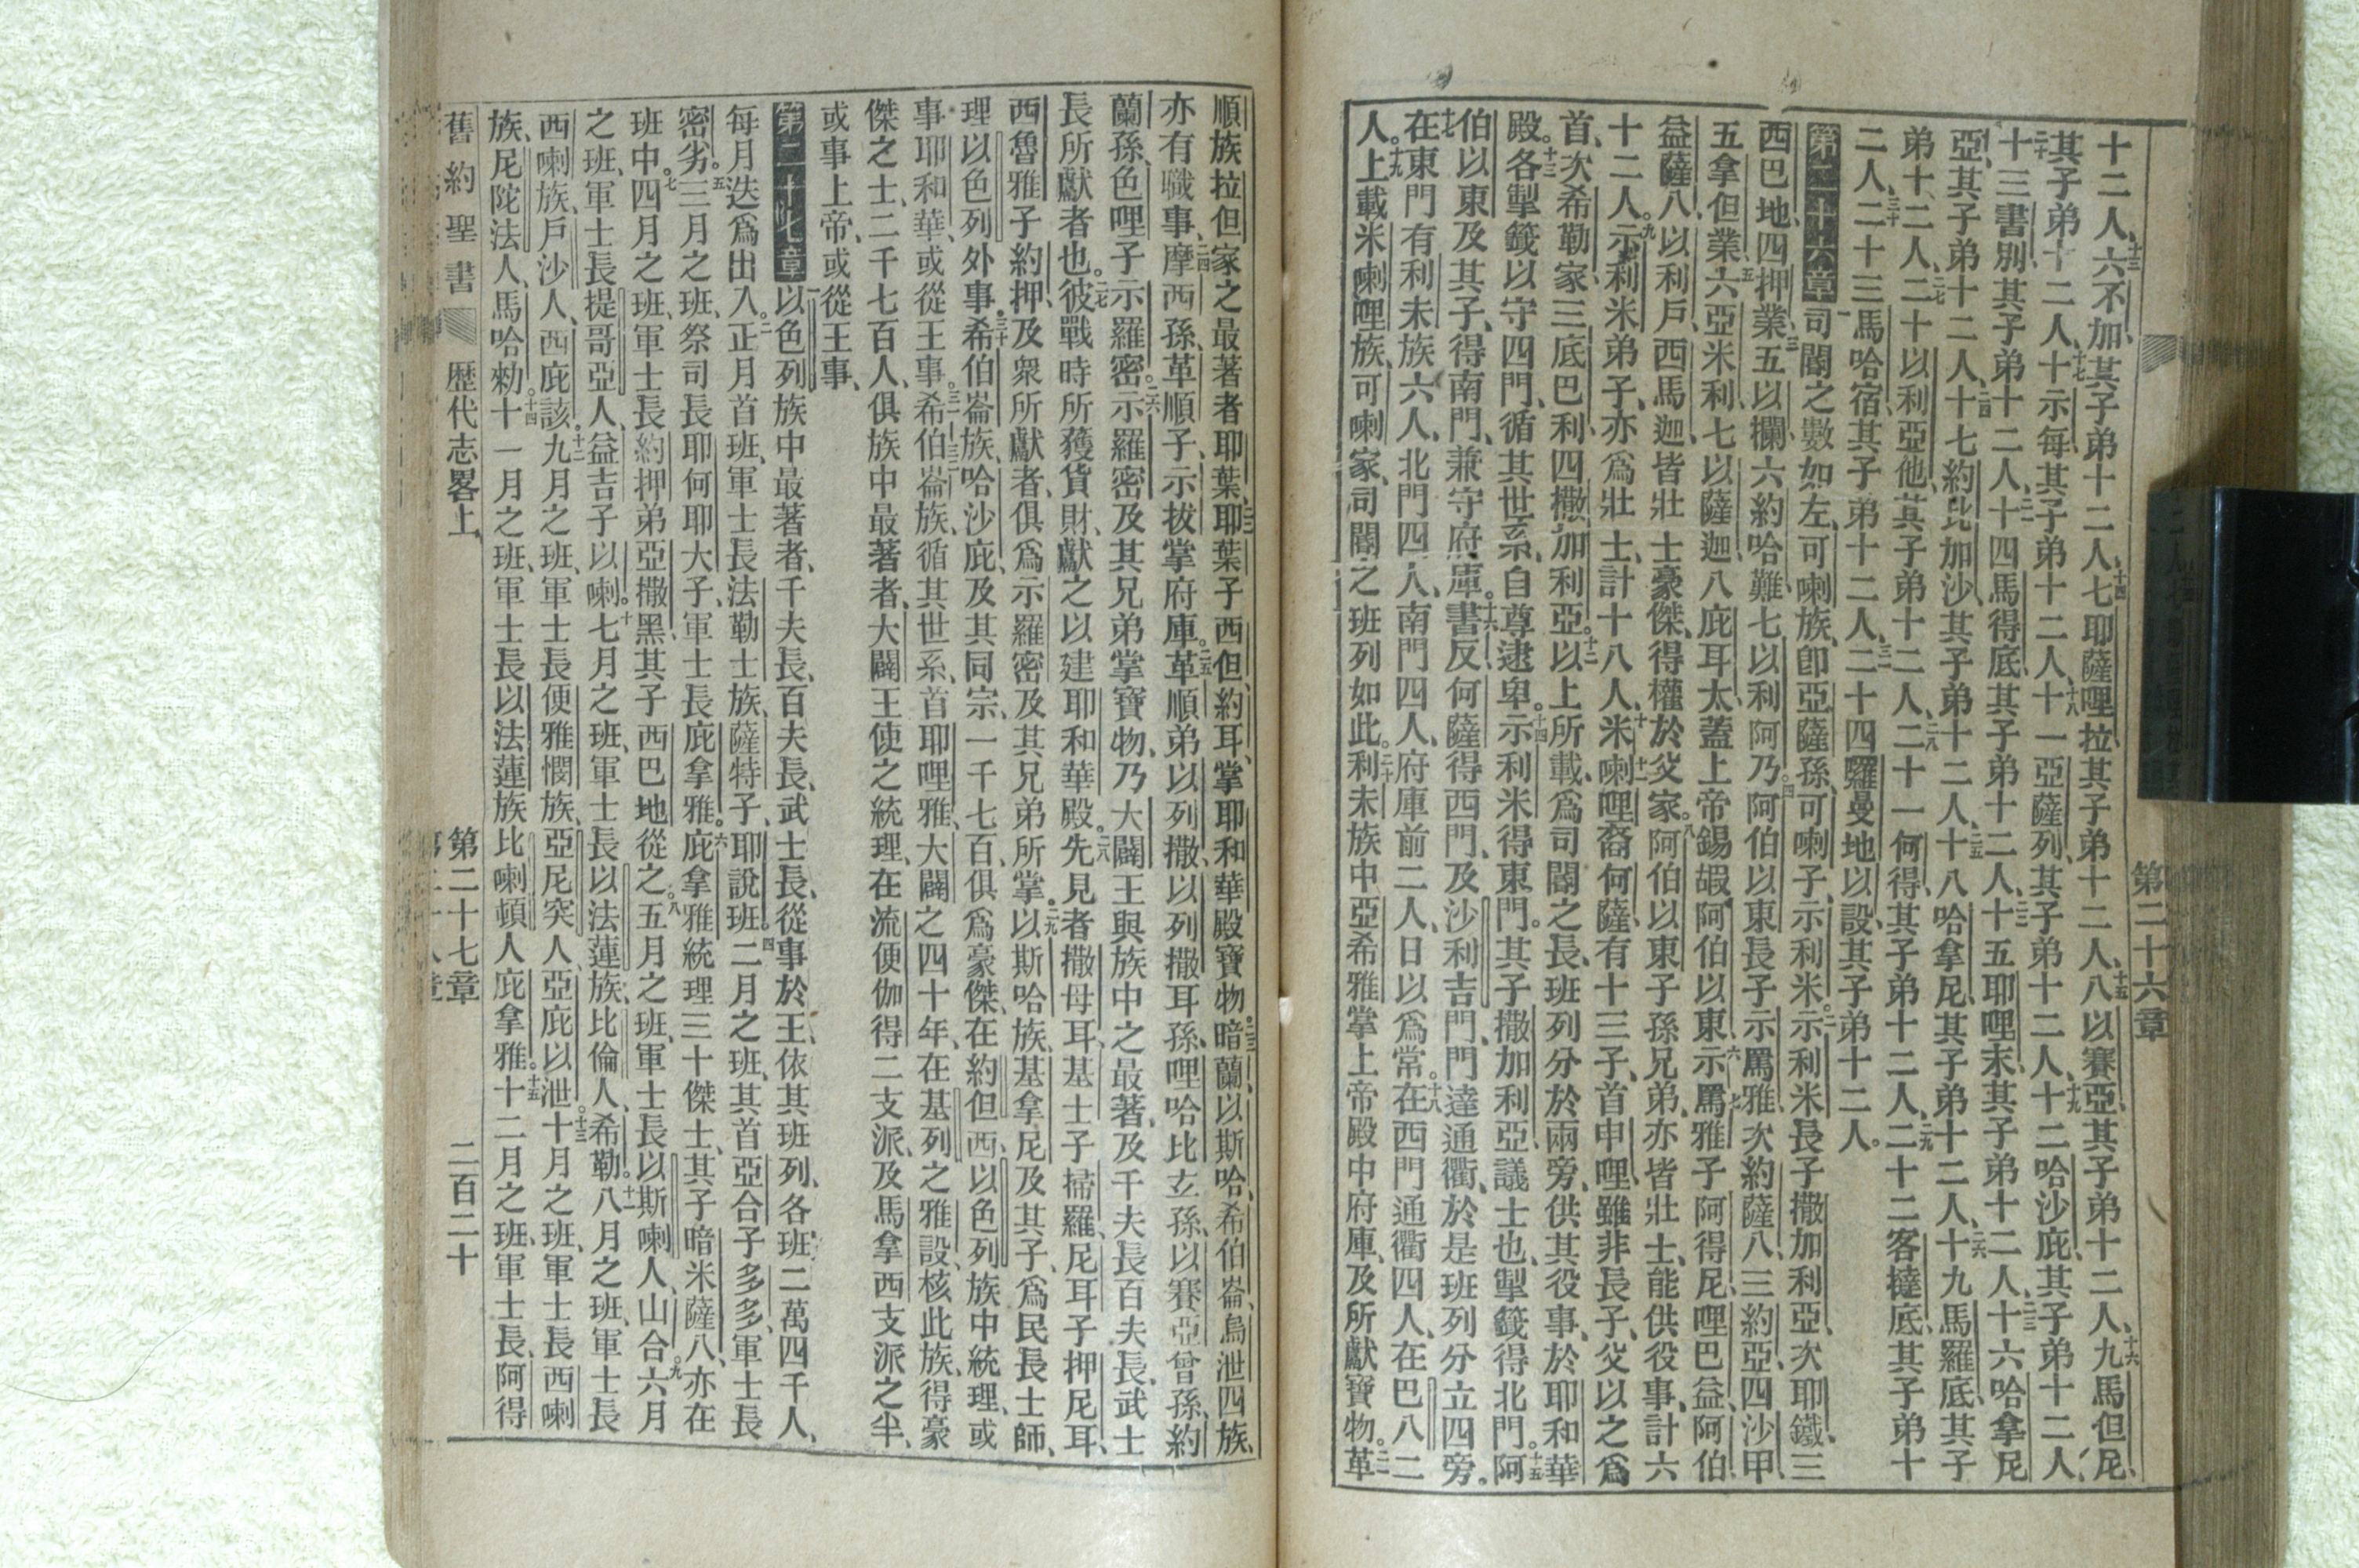 十二人、十三六不加、其子弟十二人、十四七耶薩哩拉、其子弟十二人、十五八以賽亞、其子弟十二人、十六九馬但尼、
其子弟十二人、十七十示每、其子弟十二人、十八十一亞薩列、其子弟十二人、十九十二哈沙庇、其子弟十二人、
二十十三書別、其子弟十二人、二一十四馬得底、其子弟十二人、二二十五耶哩末、其子弟十二人、二三十六哈拿尼
亞、其子弟十二人、二四十七約比加沙、其子弟十二人、二五十八哈拿尼、其子弟十二人、二六十九馬羅底、其子
弟十二人、二七二十以利亞他、其子弟十二人、二八二十一何得、其子弟十二人、二九二十二客撻底、其子弟十
二人、三十二十三馬哈宿、其子弟十二人、三一二十四羅曼地以設、其子弟十二人。
第二十六章 一司閽之數如左、可喇族、卽亞薩孫、可喇子、示利米。二示利米長子撒加利亞、次耶鐵、三
西巴地、四押業、三五以欄、六約哈難、七以利阿乃。四阿伯以東長子示罵雅、次約薩八、三約亞、四沙甲、
五拿但業、五六亞米利、七以薩迦、八庇耳太、蓋上帝錫嘏阿伯以東、六示罵雅子、七阿得尼、哩巴益、阿伯、
益薩八、以利戶、西馬迦、皆壯士豪傑、得權於父家。八阿伯以東子孫兄弟、亦皆壯士、能供役事、計六
十二人。九示利米弟子、亦爲壯士、計十八人、十米喇哩裔何薩、十一有十三子、首申哩、雖非長子、父以之爲
首、次希勒家、三底巴利、四撒加利亞。十二以上所載、爲司閽之長、班列分於兩旁、供其役事、於耶和華
殿。十三各掣籤以守四門、循其世系、自尊逮卑。十四示利米得東門。其子撒加利亞、議士也、掣籤得北門。十五阿
伯以東及其子、得南門、兼守府庫。十六書反何薩得西門、及沙利吉門、門達通衢、於是班列分立四旁。
十七在東門有利未族六人、北門四人、南門四人、府庫前二人、日以爲常。十八在西門通衢四人、在巴八二
人。十九上載米喇哩族、可喇家、司閽之班列如此。二十利未族中亞希雅、掌上帝殿中府庫、及所獻寶物。二一革
第二十六章
順族拉但家之最著者耶葉、二二耶葉子西但、約耳、掌耶和華殿寶物。二三暗蘭、以斯哈、希伯崙、烏泄四族、
亦有職事、二四摩西孫、革順子、示拔掌府庫。二五革順弟以列撒、以列撒耳孫、哩哈比玄孫、以賽亞曾孫、約
蘭孫、色哩子示羅密。二六示羅密及其兄弟、掌寶物、乃大闢王與族中之最著、及千夫長、百夫長、武士
長所獻者也。二七彼戰時所獲貨財、獻之以建耶和華殿。二八先見者撒母耳、基士子掃羅、尼耳子押尼耳、
西魯雅子約押、及衆所獻者、俱爲示羅密及其兄弟所掌。二九以斯哈族、基拿尼及其子、爲民長士師、
理以色列外事。三十希伯崙族、哈沙庇、及其同宗、一千七百、俱爲豪傑、在約但西、以色列族中統理、或
事耶和華、或從王事。三一希伯三二崙族、循其世系、首耶哩雅、大闢之四十年、在基列之雅設、核此族、得豪
傑之士、二千七百人、俱族中最著者、大闢王使之統理、在流便伽得二支派、及馬拿西支派之半、
或事上帝、或從王事、
第二十七章 一以色列族中最著者、千夫長、百夫長、武士長、從事於王、依其班列、各班二萬四千人、
每月迭爲出入。二正月首班、軍士長法勒士族、薩特子、三耶說班。四二月之班、其首亞合子多多、軍士長
密劣。五三月之班、祭司長耶何耶大子、軍士長庇拿雅。六庇拿雅統理三十傑士、其子暗米薩八、亦在
班中。七四月之班、軍士長約押弟亞撒黑、其子西巴地從之。八五月之班、軍士長以斯喇人、山合。九六月
之班、軍士長、提哥亞人、益吉子以喇。十七月之班、軍士長以法蓮族、比倫人、希勒。十一八月之班、軍士長
西喇族、戶沙人、西庇該。十二九月之班、軍士長便雅憫族、亞尼突人、亞庇以泄。十三十月之班、軍士長西喇
族、尼陀法人、馬哈勑。十四十一月之班、軍士長以法蓮族比喇頓人庇拿雅。十五十二月之班、軍士長、阿得
舊約聖書 歷代志畧上 第二十七章 二百二十